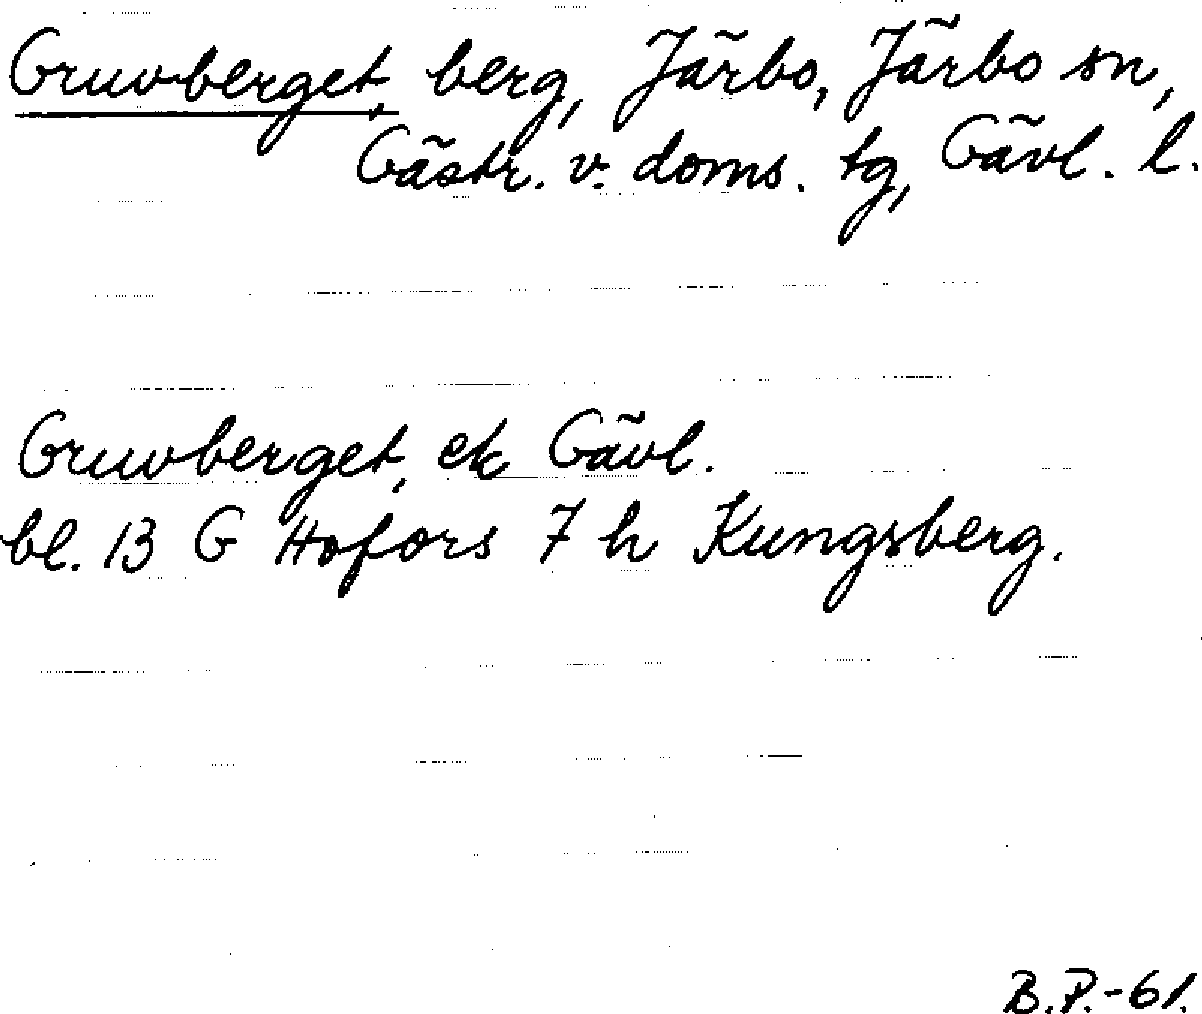 Gruvberget, berg, Järbo, Järbo sn,
Gästr. v. doms. tg, Gävl. l.
Gruvberget, ek Gävl.
bl. 13 G Hofors 7 h Kungsberg.
B.P.-61.